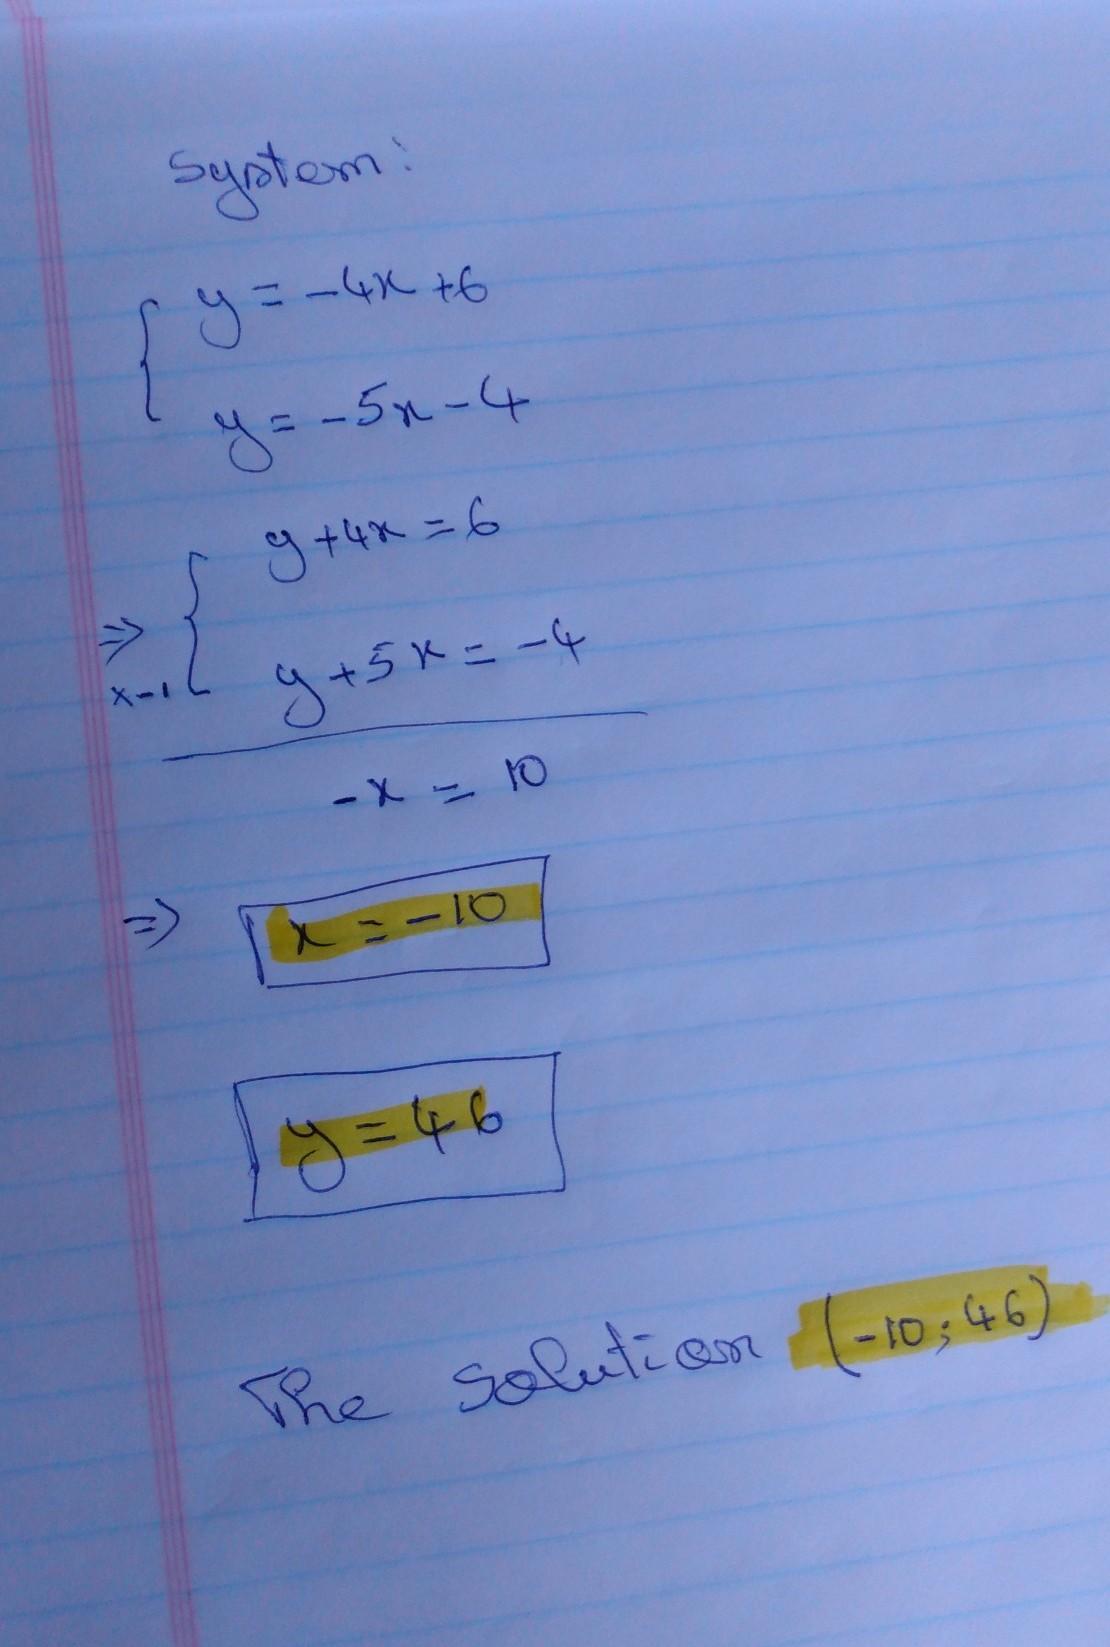 System:
y = -4x +6
y = -5x - 4
y +4x = 6
⇒
y +5x = -4
x-1
-x = 10
⇒ x = -10
y = 46
The solution (-10; 46)